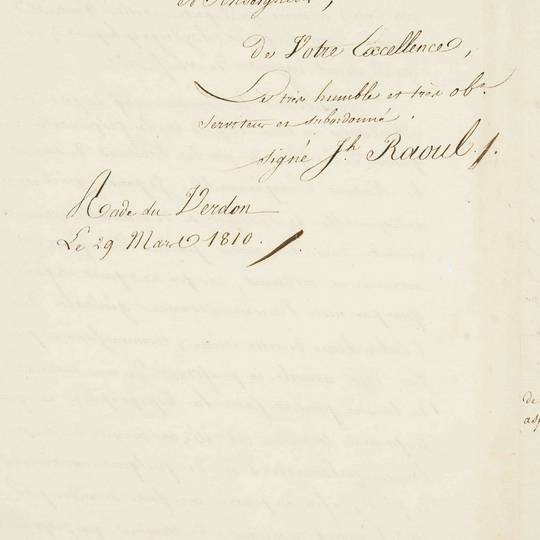 de Votre Excellence,
Le très humble et très obt.
serviteur et subordonné.
signé Jh Raoul.
Rade du Verdon
Le 29 Mars 1810.
de